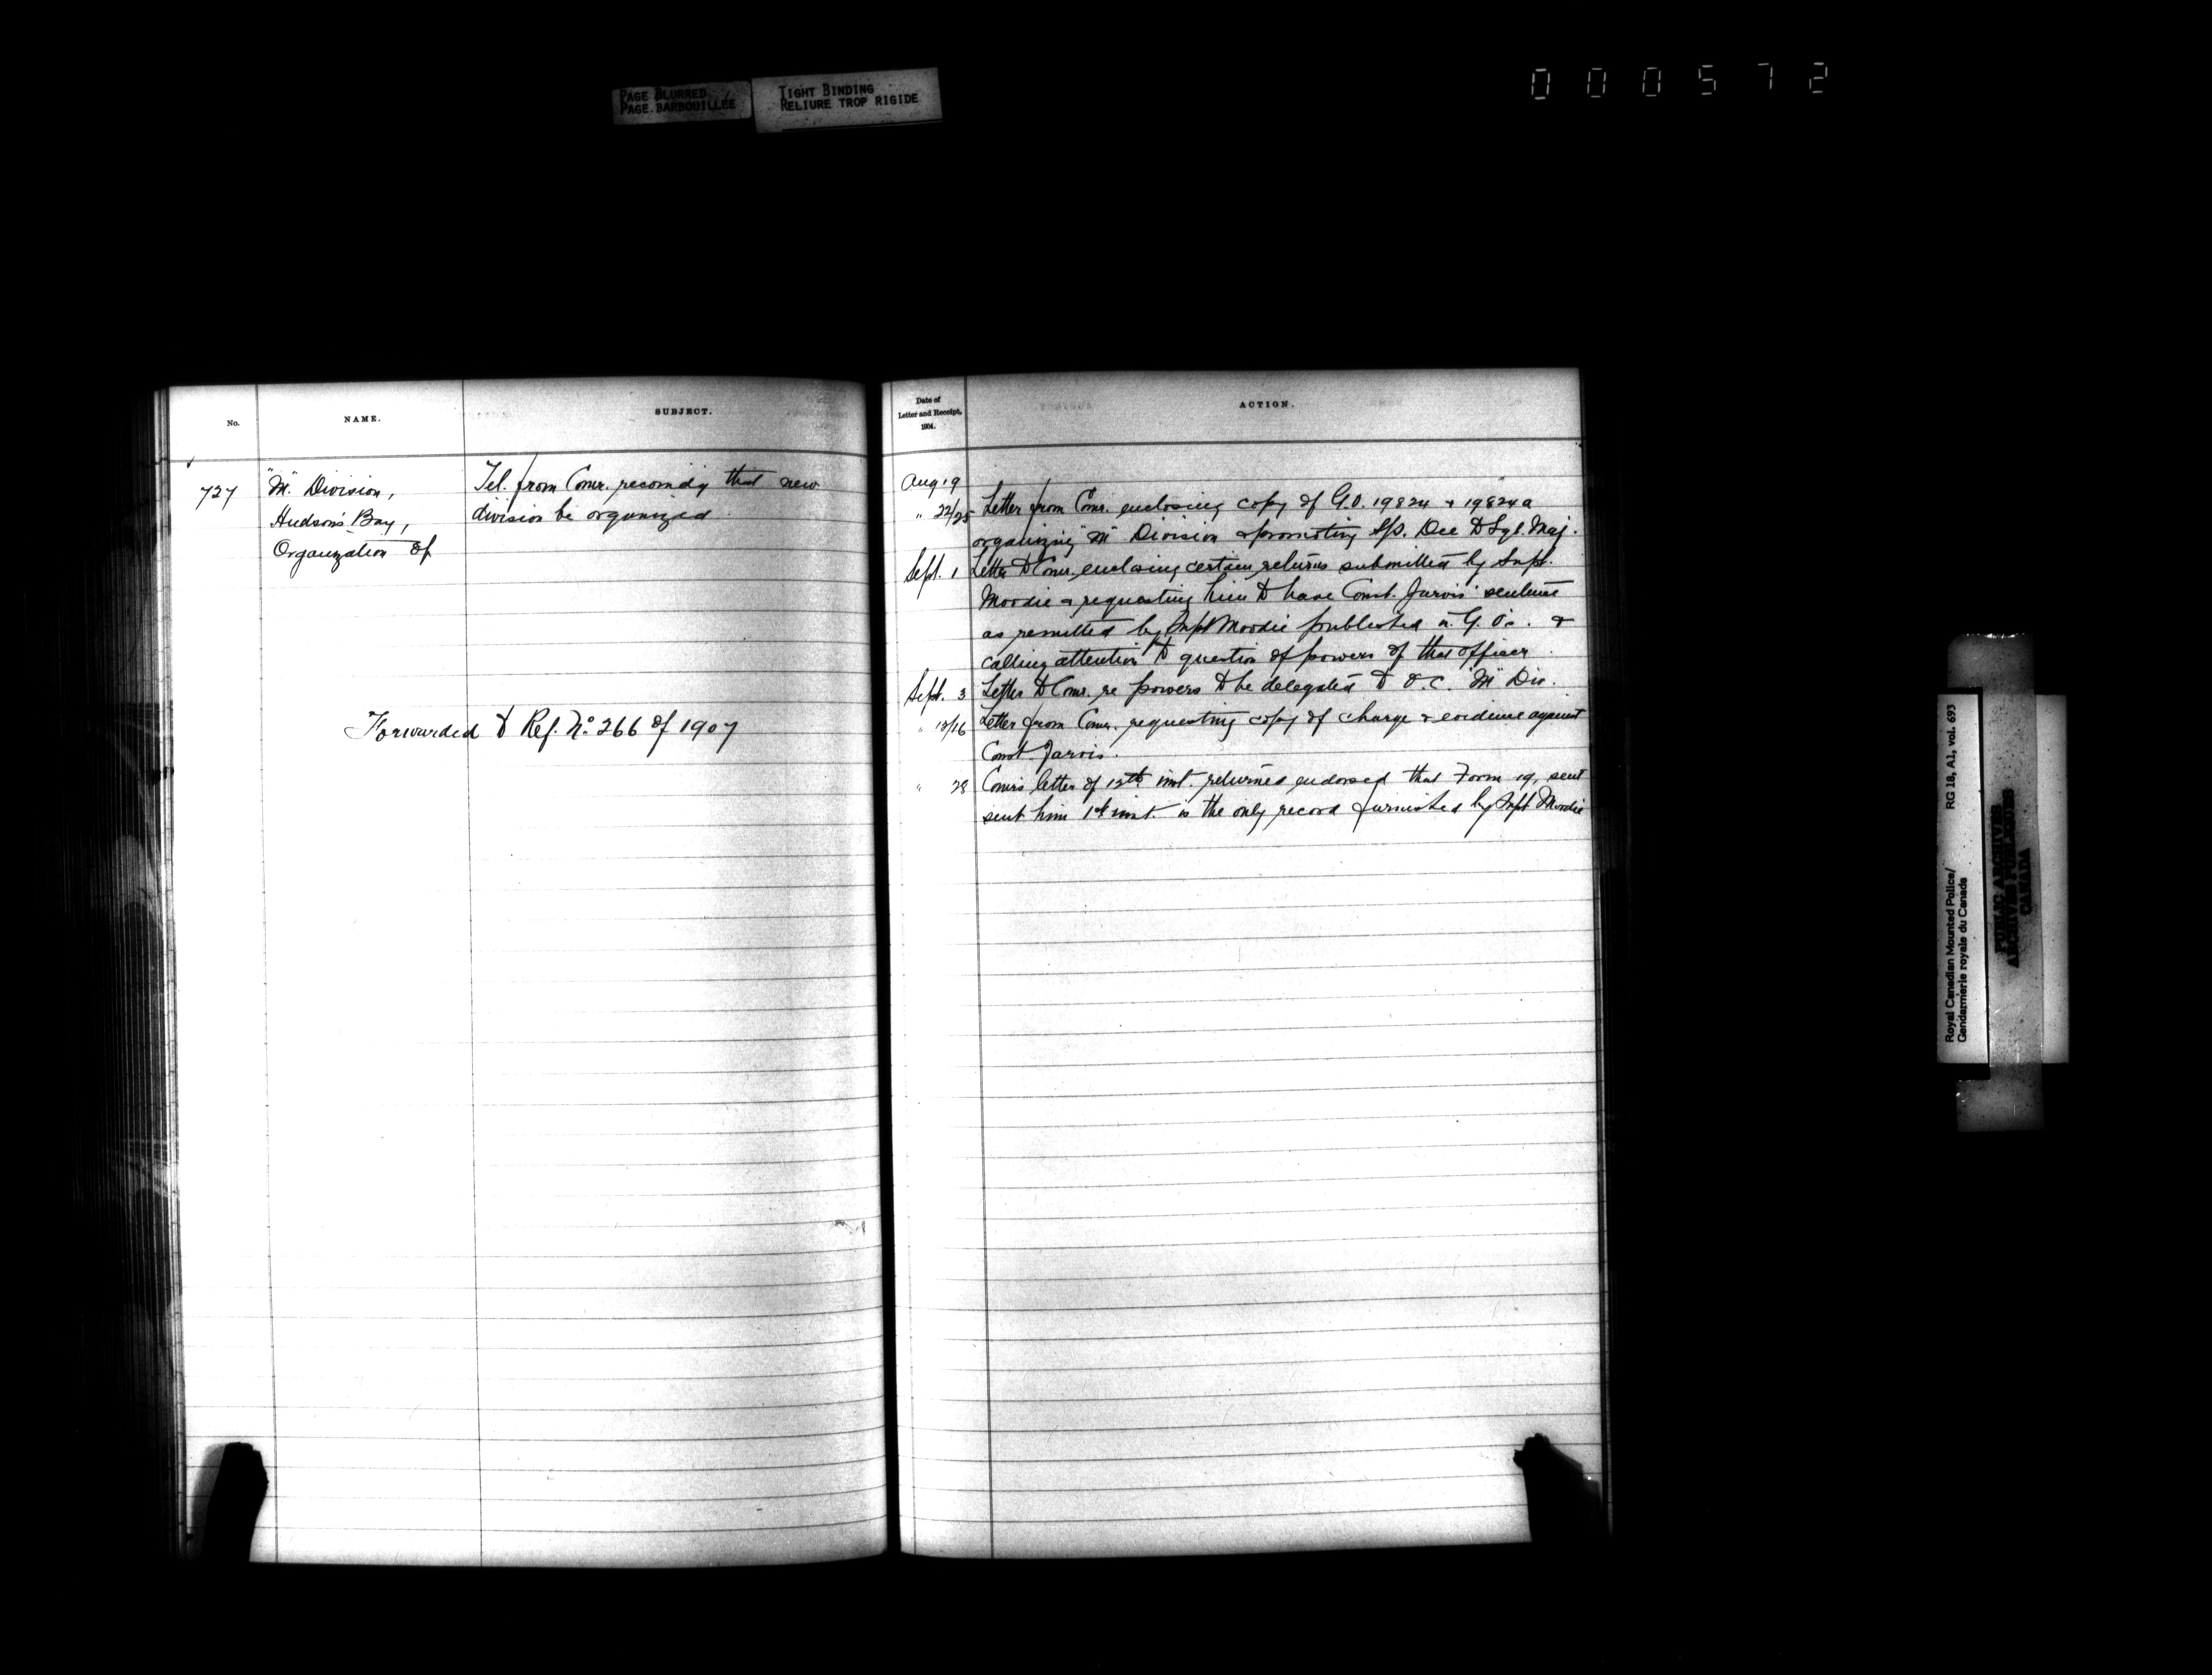 PAGE BLURRED
PAGE BARBOUILLÉE
TIGHT BINDING
RELIURE TROP RIGIDE
000572
No.
NAME.
SUBJECT.
727
"M" Division,
Hudson's Bay,
Organization of
Tel. from Comr. recomdg that new
division be organized
Forwarded to Ref. No 266 of 1907
Date of
Letter and Receipt,
1904.
ACTION.
Aug 19
" 22/25 Letter from Comr. enclosing copy of G.O. 19824 & 19824a
organizing "M" Division & promoting S/S. Dee to Sgt. Maj.
Sept. 1 Letter to Comr. enclosing certain returns submitted by Supt.
Moodie & requesting him to have Const. Jarvis' sentence
as remitted by Supt Moodie published in G.O's. &
calling attention to question of powers of that officer.
Sept. 3 Letter to Comr. re powers to be delegated to O.C. "M" Div.
" 12/16 Letter from Comr. requesting copy of charge & evidence against
Const Jarvis.
" 28 Comr's letter of 12th inst. returned endorsed that Form 19, sent
sent him 1st inst. is the only record furnished by Supt Moodie
Royal Canadian Mounted Police/
Gendarmerie royale du Canada
RG 18, A1, vol. 693
PUBLIC ARCHIVES
ARCHIVES PUBLIQUES
CANADA